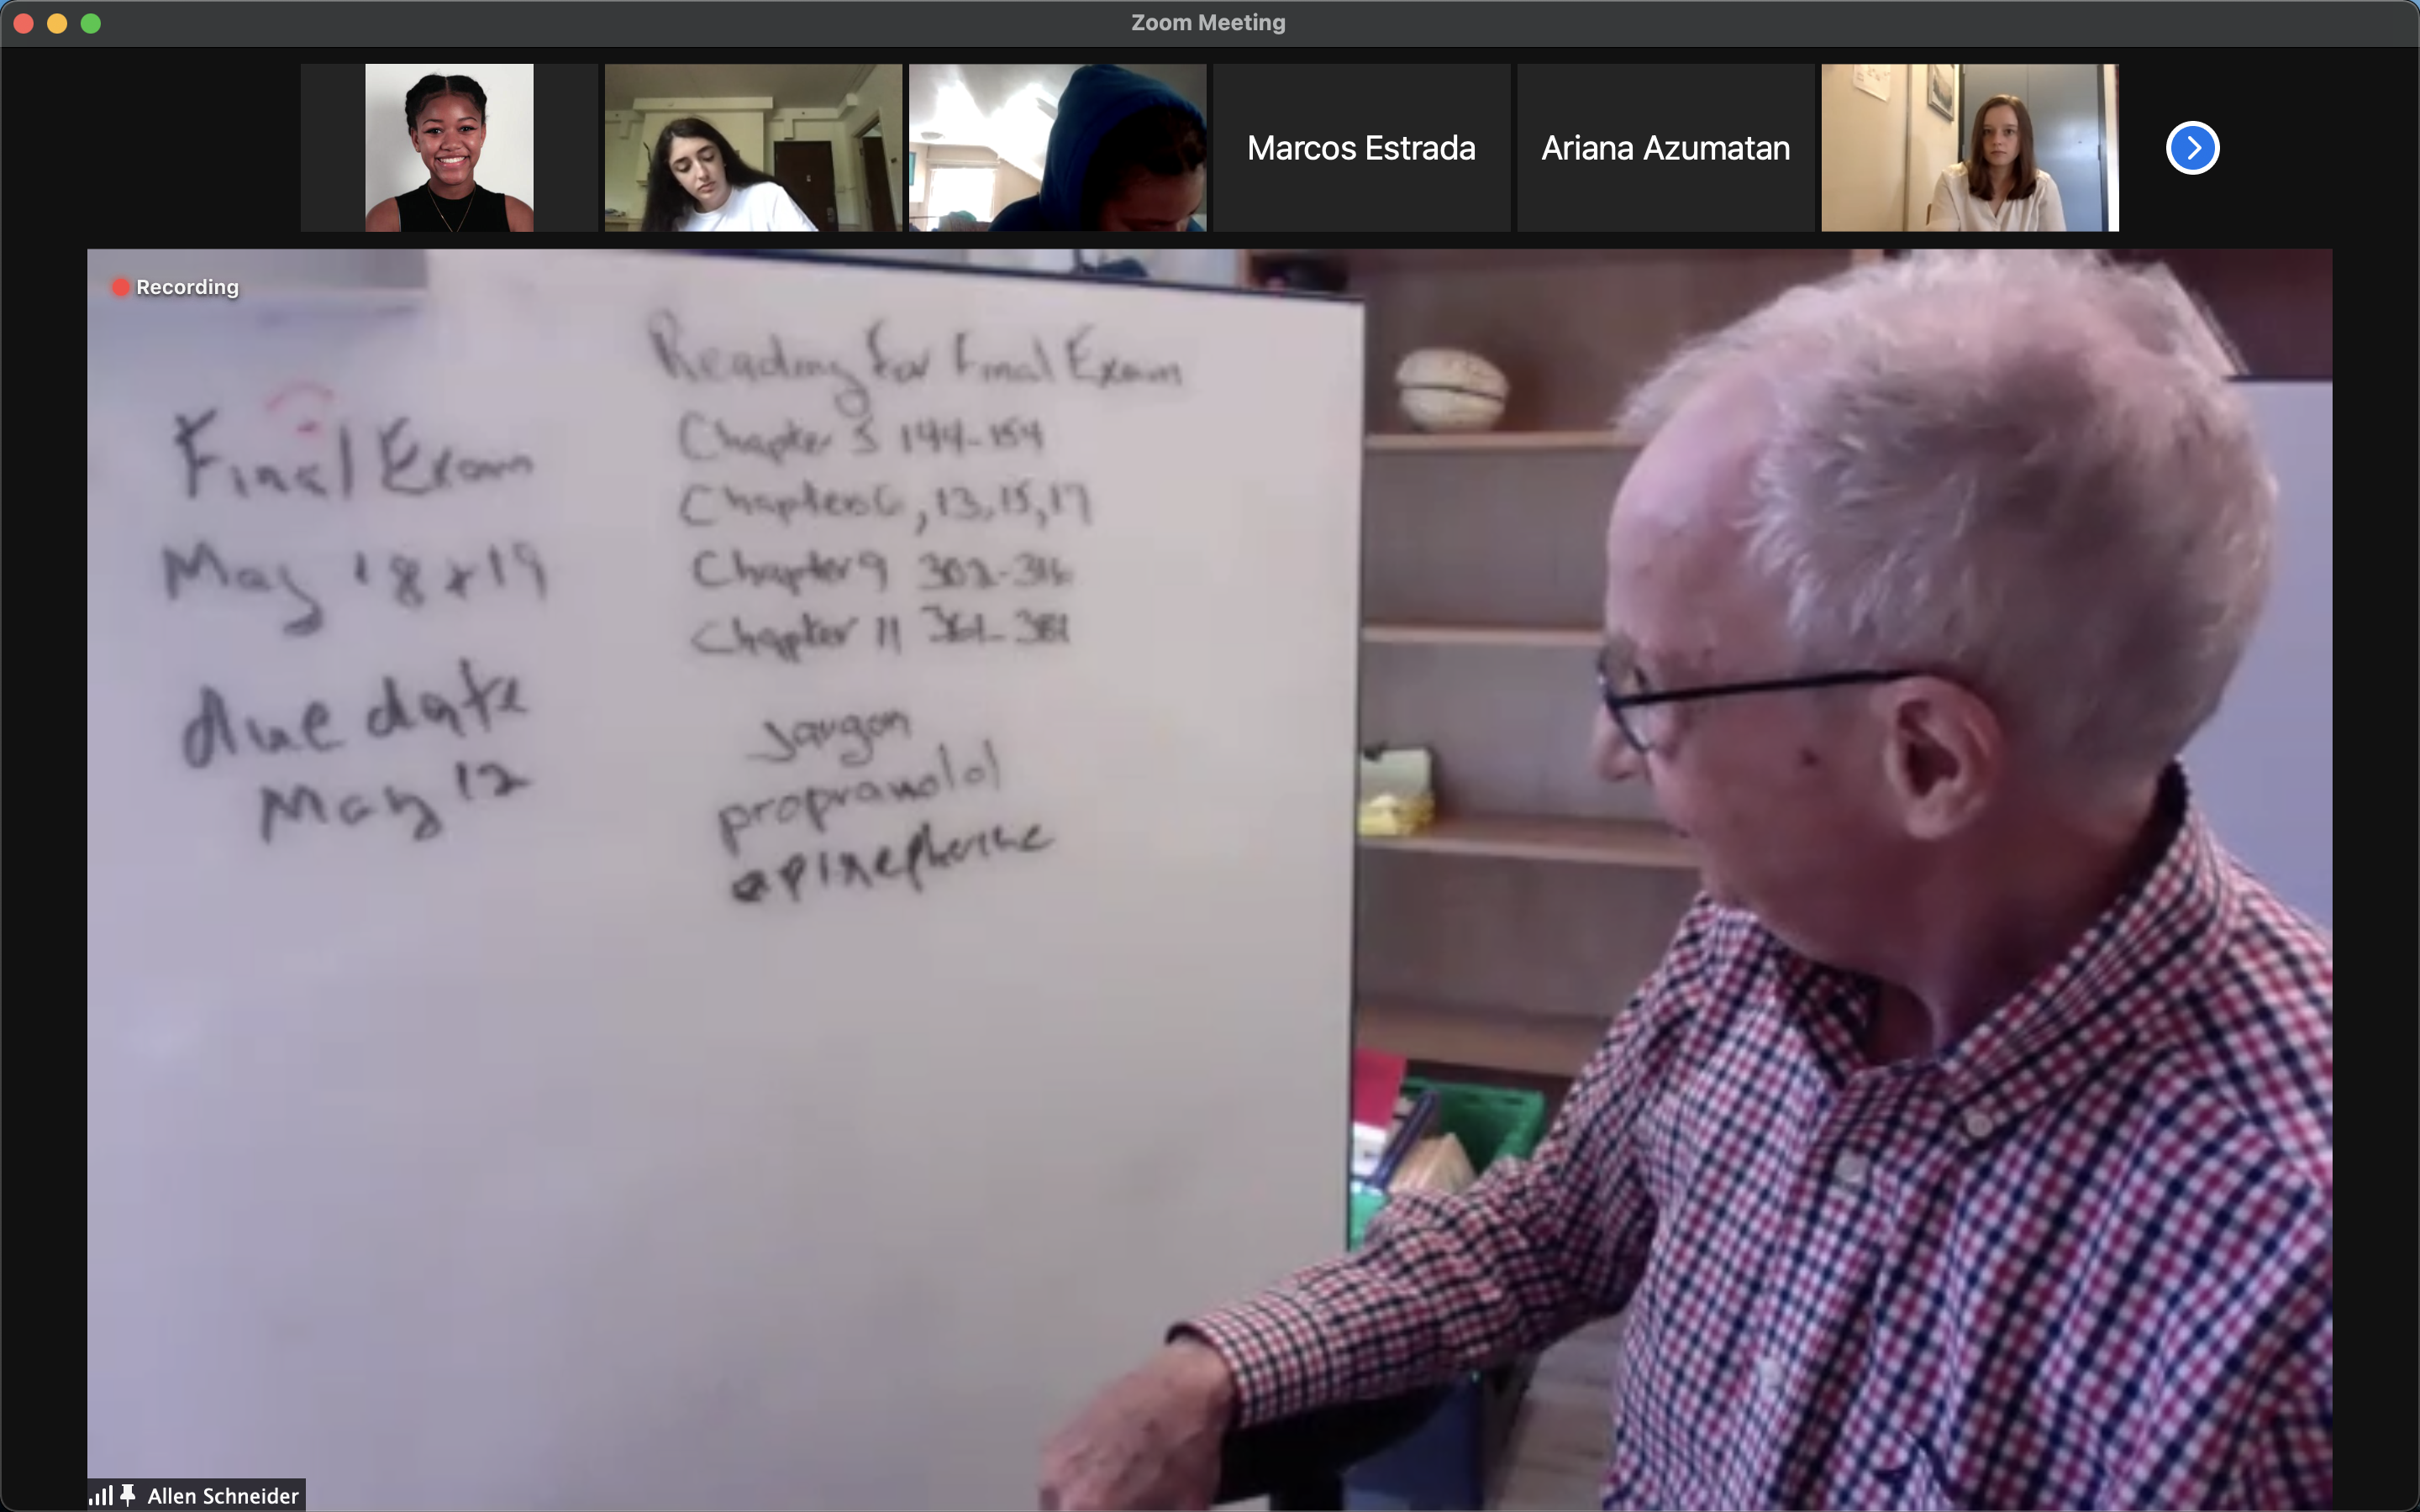 Zoom Meeting
Marcos Estrada
Ariana Azumatan
Recording
Final Exam
May 18 + 19
due date
May 12
Reading for Final Exam
Chapter 5 144-154
Chapters 6, 13, 15, 17
Chapter 9 302-316
Chapter 11 361-381
Jargon
propranolol
epinepherine
Allen Schneider